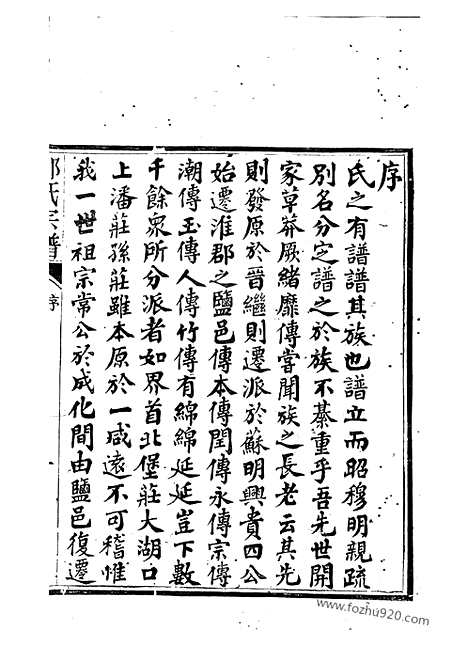 序
氏之有譜譜其族也譜立而昭穆明親疏
別名分定譜之於族不綦重乎吾先世開
家草莽厥緒靡傳嘗聞族之長老云其先
則發原於晉繼則遷派於蘇明興貴四公
始遷淮郡之鹽邑傳本傳閏傳永傳宗傳
潮傳玉傳人傳竹傳有綿綿延延豈下數
千餘衆所分派者如界首北堡莊大湖口
上潘莊孫莊雖本原於一咸遠不可稽惟
我一世祖宗常公於成化間由鹽邑復遷
氏宗譜
序
www.fozhu920.com